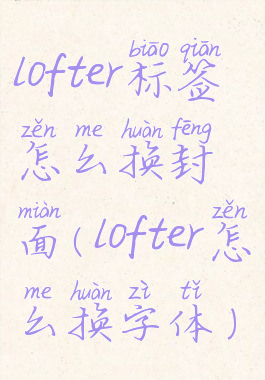 biāo qiān
lofter标签
zěn me huàn fēng
怎么换封
miàn zěn
面(lofter怎
me huàn zì tǐ
么换字体)